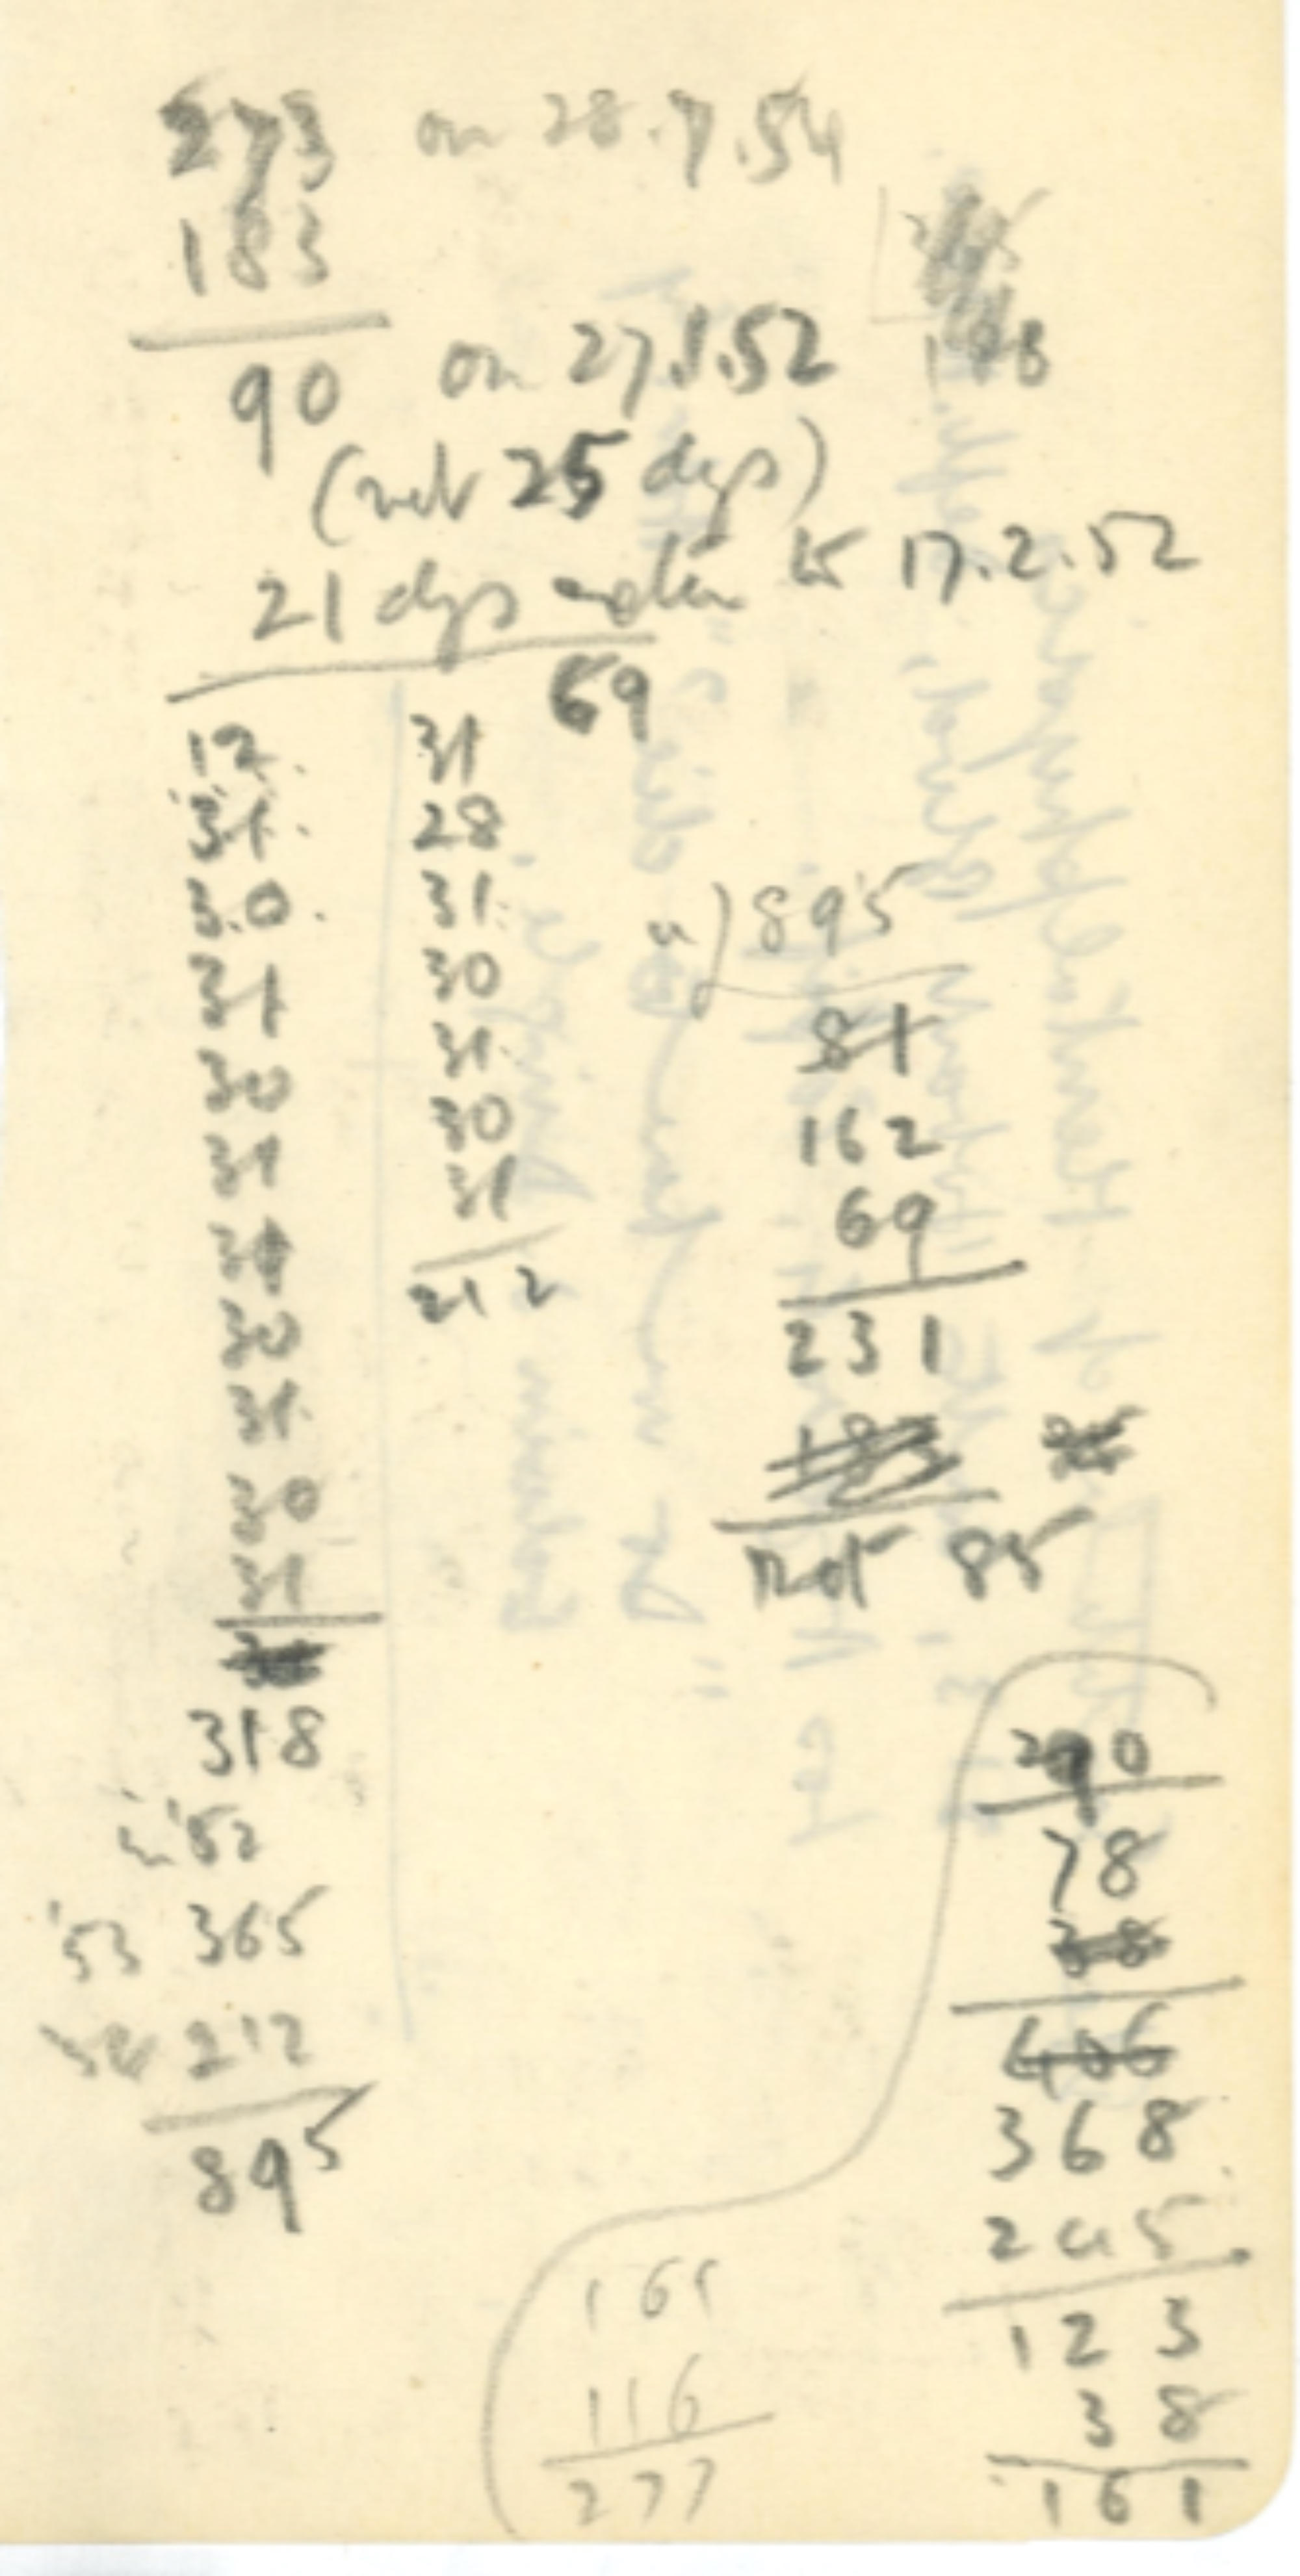 273 on 28.7.54
183
90 on 27.1.52
(net 25 dys)
21 dys to 17.2.52
69
12.
31.
30.
31
30
31
31
30
31.
30
31
318
'52
'53 365
54 212
895
31
28
31.
30
31.
30
31
212
895
81
162
69
231
85
290
78
38
406
368
245
123
38
161
161
116
277